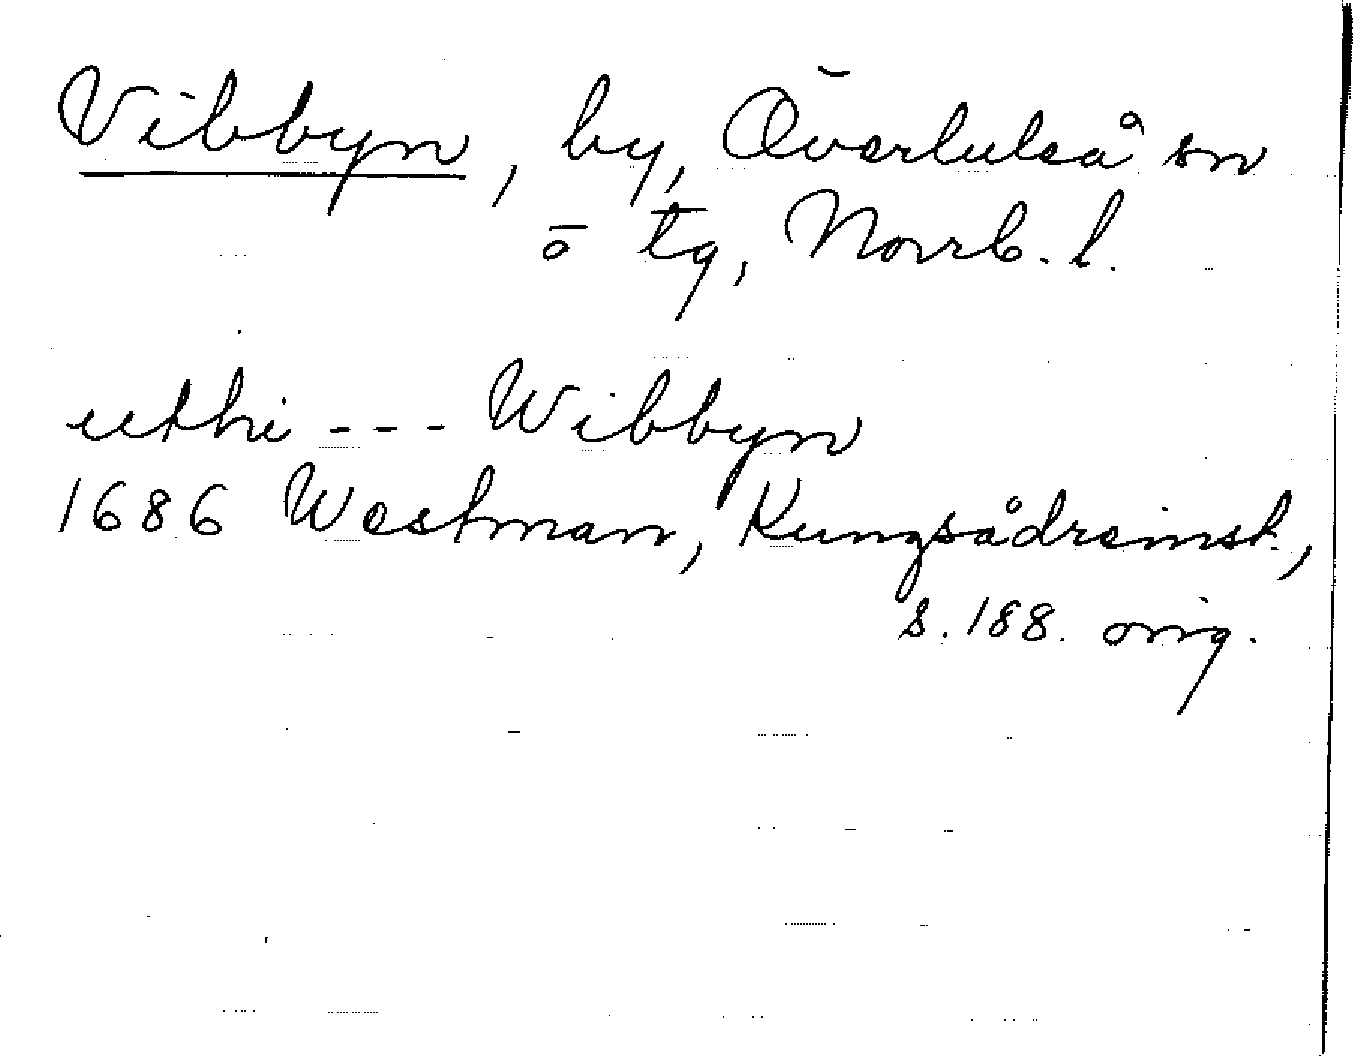 Vibbyn, by, Överluleå sn
ö tg, Norrb. l.
uthi --- Wibbyn
1686 Westman, Kungsådreinst.,
s. 188. orig.